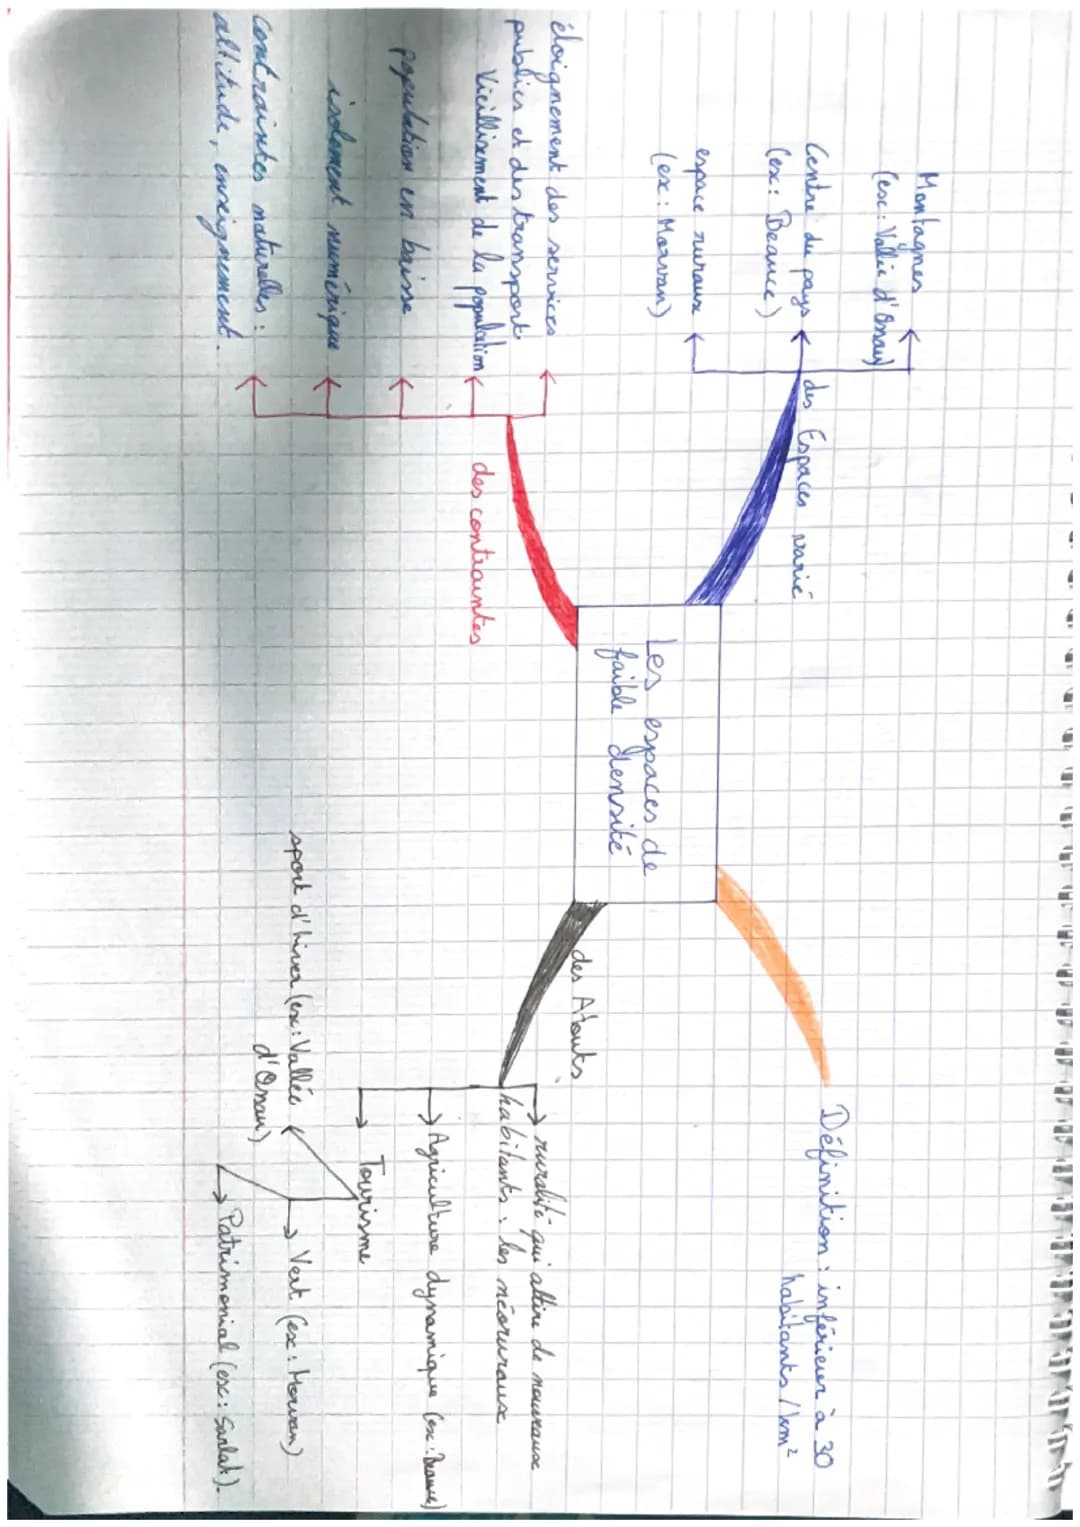 Les espaces de
faible densité
Définition : inférieur à 30
habitants / km²
des Espaces varié
Montagnes
(ex : Vallée d'Ossau)
Centre du pays
(ex : Beauce)
espace ruraux
(ex : Morvan)
des contraintes
éloignement des services
publics et des transport
Vieillissement de la population
population en baisse
isolement numérique
Contraintes naturelles :
altitude, enneignement.
des Atouts
ruralité qui attire de nouveaux
habitants : les néoruraux
Agriculture dynamique (ex : Beauce)
Tourisme
sport d'hiver (ex : Vallée
d'Ossau)
Vert (ex : Morvan)
Patrimonial (ex : Sarlat).